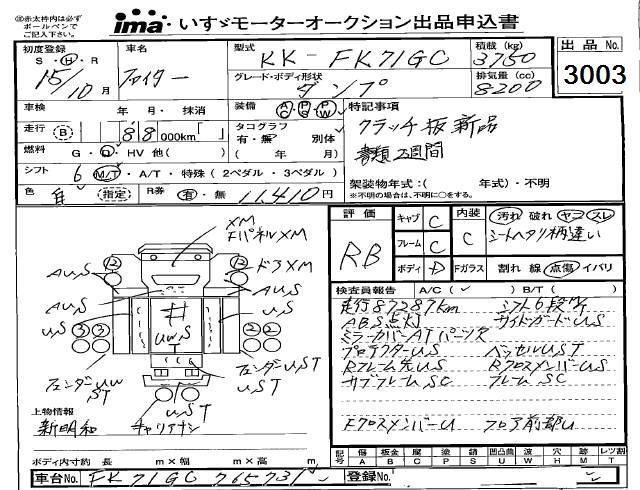 ※赤太枠内は必ず
ボールペンで
ご記入下さい。
ima いすゞモーターオークション出品申込書
初度登録
S・H・R
15/10月
車名
ファイター
型式
KK-FK71GC
積載(kg)
3750
出品No.
3003
グレード・ボディ形状
ダンプ
排気量(cc)
8200
車検 年・月・抹消
装備 AC PS PW
特記事項
クラッチ板新品
書類2週間
走行 B 88 000km「 」
タコグラフ 別体
有・無 ( 年 月)
燃料 G・D・HV 他( )
シフト 6 M/T・A/T・特殊(2ペダル・3ペダル)
架装物年式:( 年式)・不明
※不明の場合は、不明に○をする。
色 (指定) R券 有・無 11,410円
XM
FパネルXM
ドアXM
AUS
AUS
US
UWS
US
フェンダーUW
ST
フェンダーUST
UST
キャリアナシ
上物情報
新明和
ボディ内寸約 長 m×幅 m×高 m
車台No. FK71GC 765731
登録No.
評価
RB
キャブ C
フレーム C
ボディ D
内装 C
Fガラス
汚れ 破れ ヤコ スレ
シートヘタリ柄違い
割れ 線 点傷 イバリ
検査員報告 A/C( ✓ ) B/T( )
走行87287km シフト6段M/T
ABS点灯 サイドガードUS
ミラーカバーATパーツ欠
プロテクターUS ベッセルUST
Rフレーム先US RクロスメンバーUS
サブフレームSC フレームSC
FクロスメンバーU フロア前部U
記号 傷 板金 腐 塗 錆 凹凸曲 波 穴 跡 滅 レツ割
A B C P S U W H M T